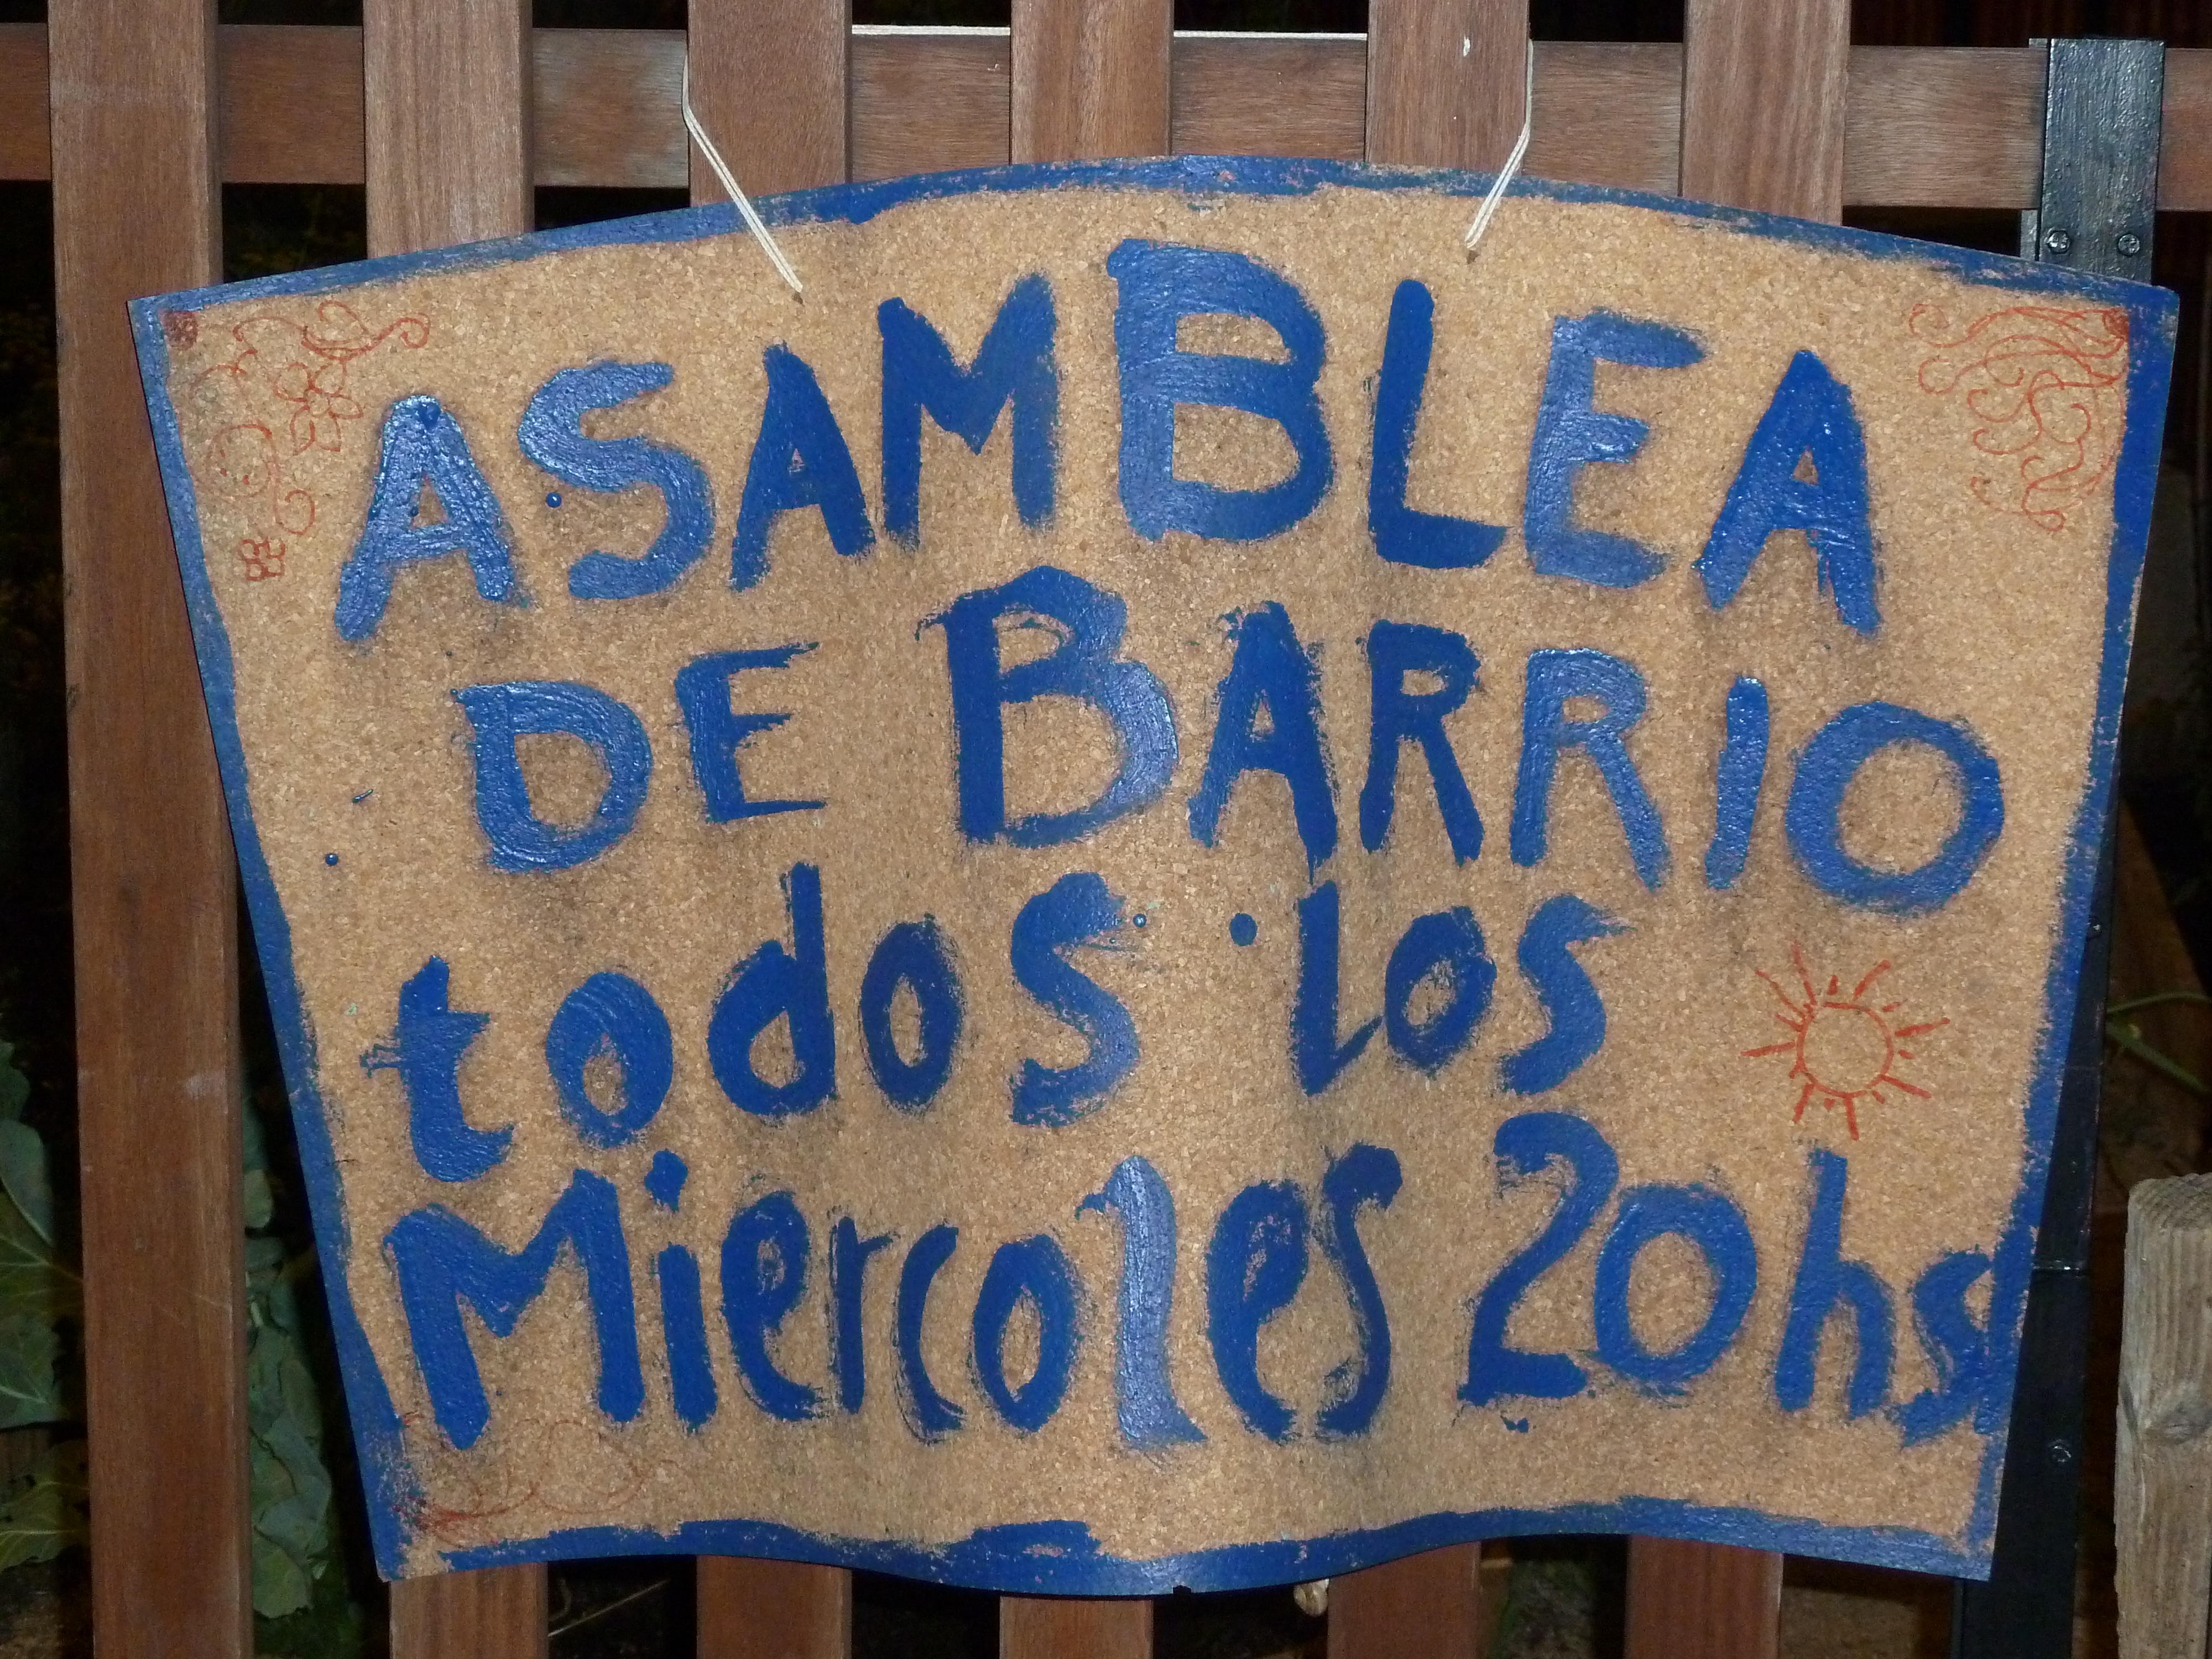 ASAMBLEA
DE BARRIO
todos los
Miercoles 20hs